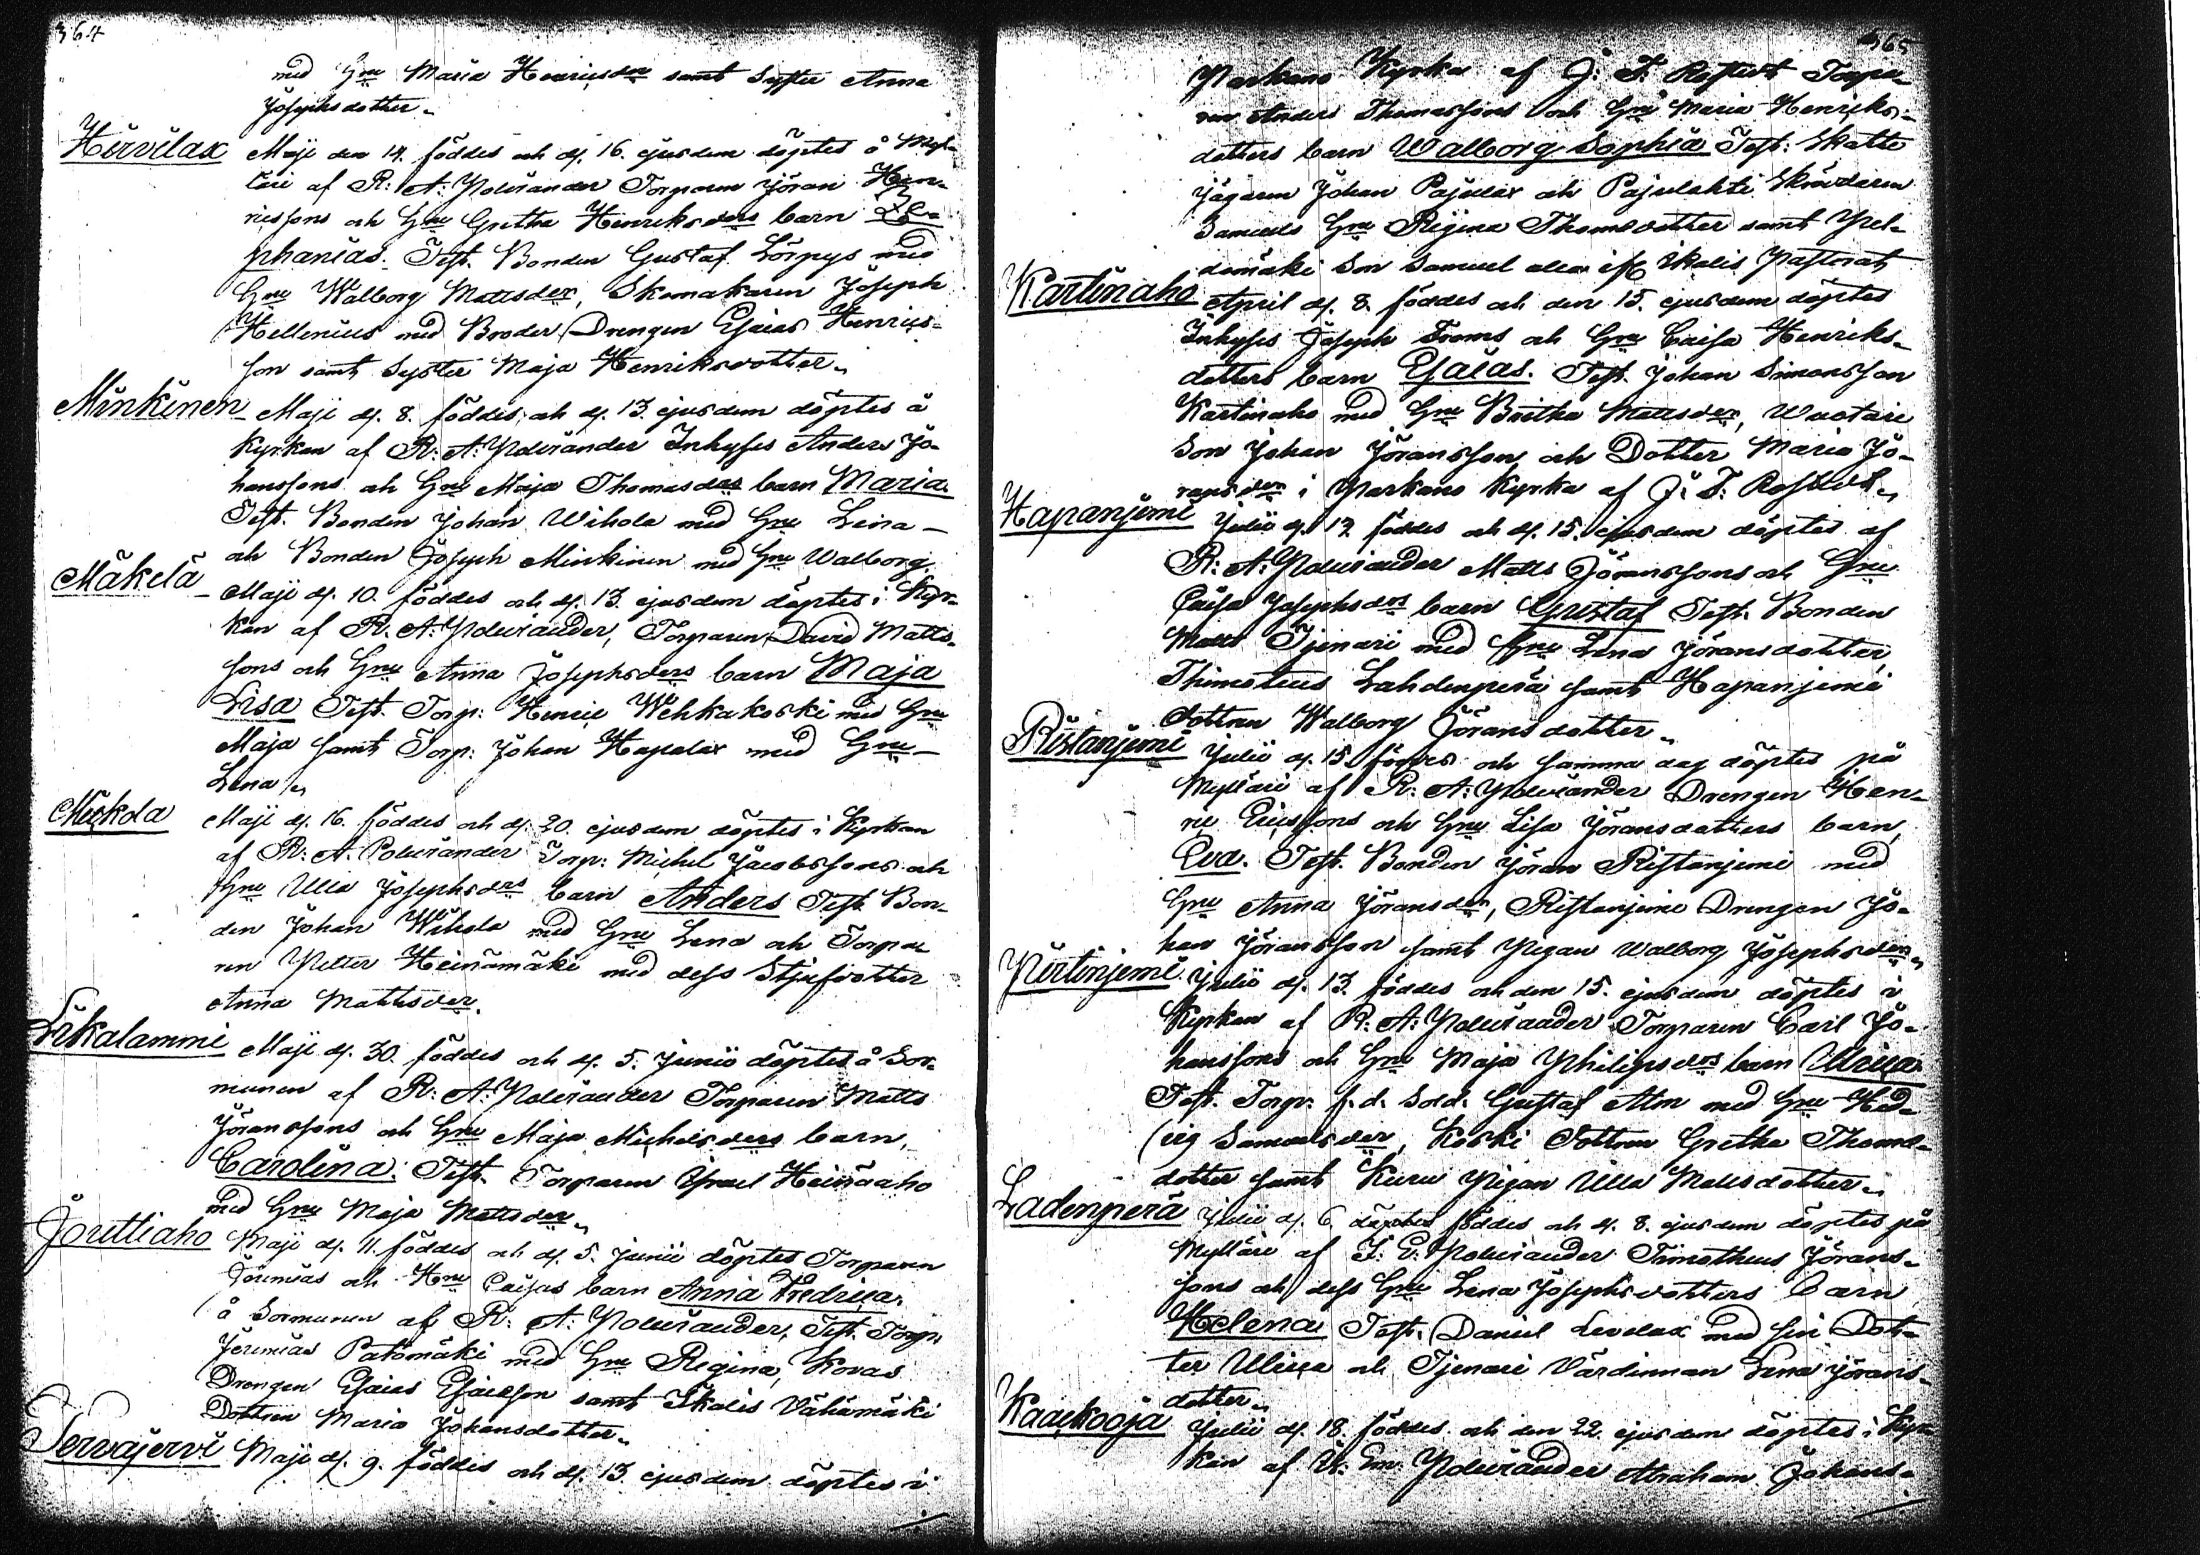 364
med Hru Maria Henricsder samt Syster Anna
Josephsdotter.
Hirvilax Maji den 14. föddes och d. 16. ejusdem döptes å Myl-
läri af R: A: Poluiander Torparen Jöran Hen-
ricssons och Hru Gretha Henriksders barn Ze-
phanias. Test. Bonden Gustaf Lörpys med
Hru Walborg Mattsder, Skomakaren Joseph
Hellenius med Broder Drengen Esaias Henrics-
son samt Syster Maja Henriksdotter.
Minkinen Maji d. 8. föddes, och d. 13. ejusdem döptes å
Kyrkan af R: A: Poluiander Inhyses Anders Jo-
hanssons och Hru Maja Thomasders barn Maria.
Test. Bonden Johan Wihola med Hru Lena
och Bonden Joseph Minkinen med Hru Walborg.
Mäkelä Maji d. 10. föddes och d. 13. ejusdem döptes i Kyr-
kan af R. A: Poluiander, Torparen David Matts-
sons och Hru Anna Josephsders barn Maja
Lisa Test. Torp: Henric Wehkakoski med Hru
Maja samt Torp: Johan Hapalax med Hru
Lena
Mickola Maji d. 16. föddes och d. 20. ejusdem döptes i Kyrkan
af R: A. Poluiander Torp: Michel Jacobssons och
Hru Ulla Josephsders barn Anders Test. Bon-
den Johan Wihola med Hru Lena och Torpa-
ren Petter Heinämäki med dess Stjufdotter
Anna Mattsder.
Likalammi Maji d. 30. föddes och d. 5. Junii döptes å Sor-
munen af R: A. Poluiander Torparen Matts
Jöranssons och Hru Maja Michelsders barn,
Carolina: Test. Torparen Israel Heinäaho
med Hru Maja Mattsder.
Jouttiaho Maji d. 11. föddes och d. 5. Junii döptes Torparen
Jeremias och Hru Caisas barn Anna Fredrica.
å Sormunen af R: A: Poluiander, Test. Torp:
Jeremias Patomäki med Hru Regina, Kovas
Drengen Esaias Esaiesson samt Ikalis Vähämäki
Dottren Maria Johansdotter.
Tervajervi Maji d. 9. föddes och d. 13. ejusdem döptes i
365
Parkano Kyrka af J: F: Rostedt Torpa-
ren Anders Thomassons och Hru Maria Henriks-
dotters barn Walborg Sophia Test: Skatte
Jägaren Johan Pajulax och Pajulahti Skräddaren
Samuels Hru Regina Thomsdotter samt
Son Samuel Ikalis Pastorat
Kartinaho April d. 8. föddes och den 15. ejusdem döptes
Inhyses Joseph Froms och Hru Caisa Henriks-
dotters barn Esaias. Test. Johan Simonsson
Kartinaho med Hru Beitha Mattsder, Wuotari
Son Johan Jöransson och Dotter Maria Jö-
ransder i Parkano Kyrka af J: F: Rostedt.
Hapanjemi Julii d. 13 föddes och d. 15. ejusdem döptes af
R: A: Poluiander Matts Jöranssons och Hru
Caisa Josephsders barn Gustaf Test. Bonden
Matts Tjenari med Hru Lena Jöransdotter,
Thimoteus Lahdenperä samt Hapanjemi
dottren Walborg Jöransdotter.
Ristanjemi Julii d. 15 föddes och samma dag döptes på
Mylläri af R: A: Poluiander Drengen Hen-
ric Ericssons och Hru Lisa Jöransdotters barn,
Eva. Test. Bonden Jöran Ristanjemi med
Hru Anna Jöransder, Ristanjemi Drengen Jo-
han Jöransson samt Pigan Walborg Josephsder.
Pirtinjemi Julii d. 13. föddes och den 15. ejusdem döptes i
Kyrkan af R: A: Poluiander Torparen Carl Jo-
hanssons och Hru Maja Philipsders barn Ulrica.
Test. Torp. f. d. Sold. Gustaf Alm med Hru Hed-
vig Samuelsder, Koski Dottren Gretha Thoms-
dotter samt Kuru Pigan Ulla Mattsdotter.
Ladenperä Julii d. 6. döptes föddes och d. 8. ejusdem döptes på
Mylläri af F: E: Poluiander Timotheus Jörans-
sons och dess Hru Lena Josephsdotters barn
Helena Test. Daniel Levelax med sin Dot-
ter Ulrica och Tjenari Värdinnan Lena Jörans-
dotter.
Kaackooja Julii d. 18. föddes och den 22. ejusdem döptes i Kyr-
kan af Poluiander Abraham Johans-